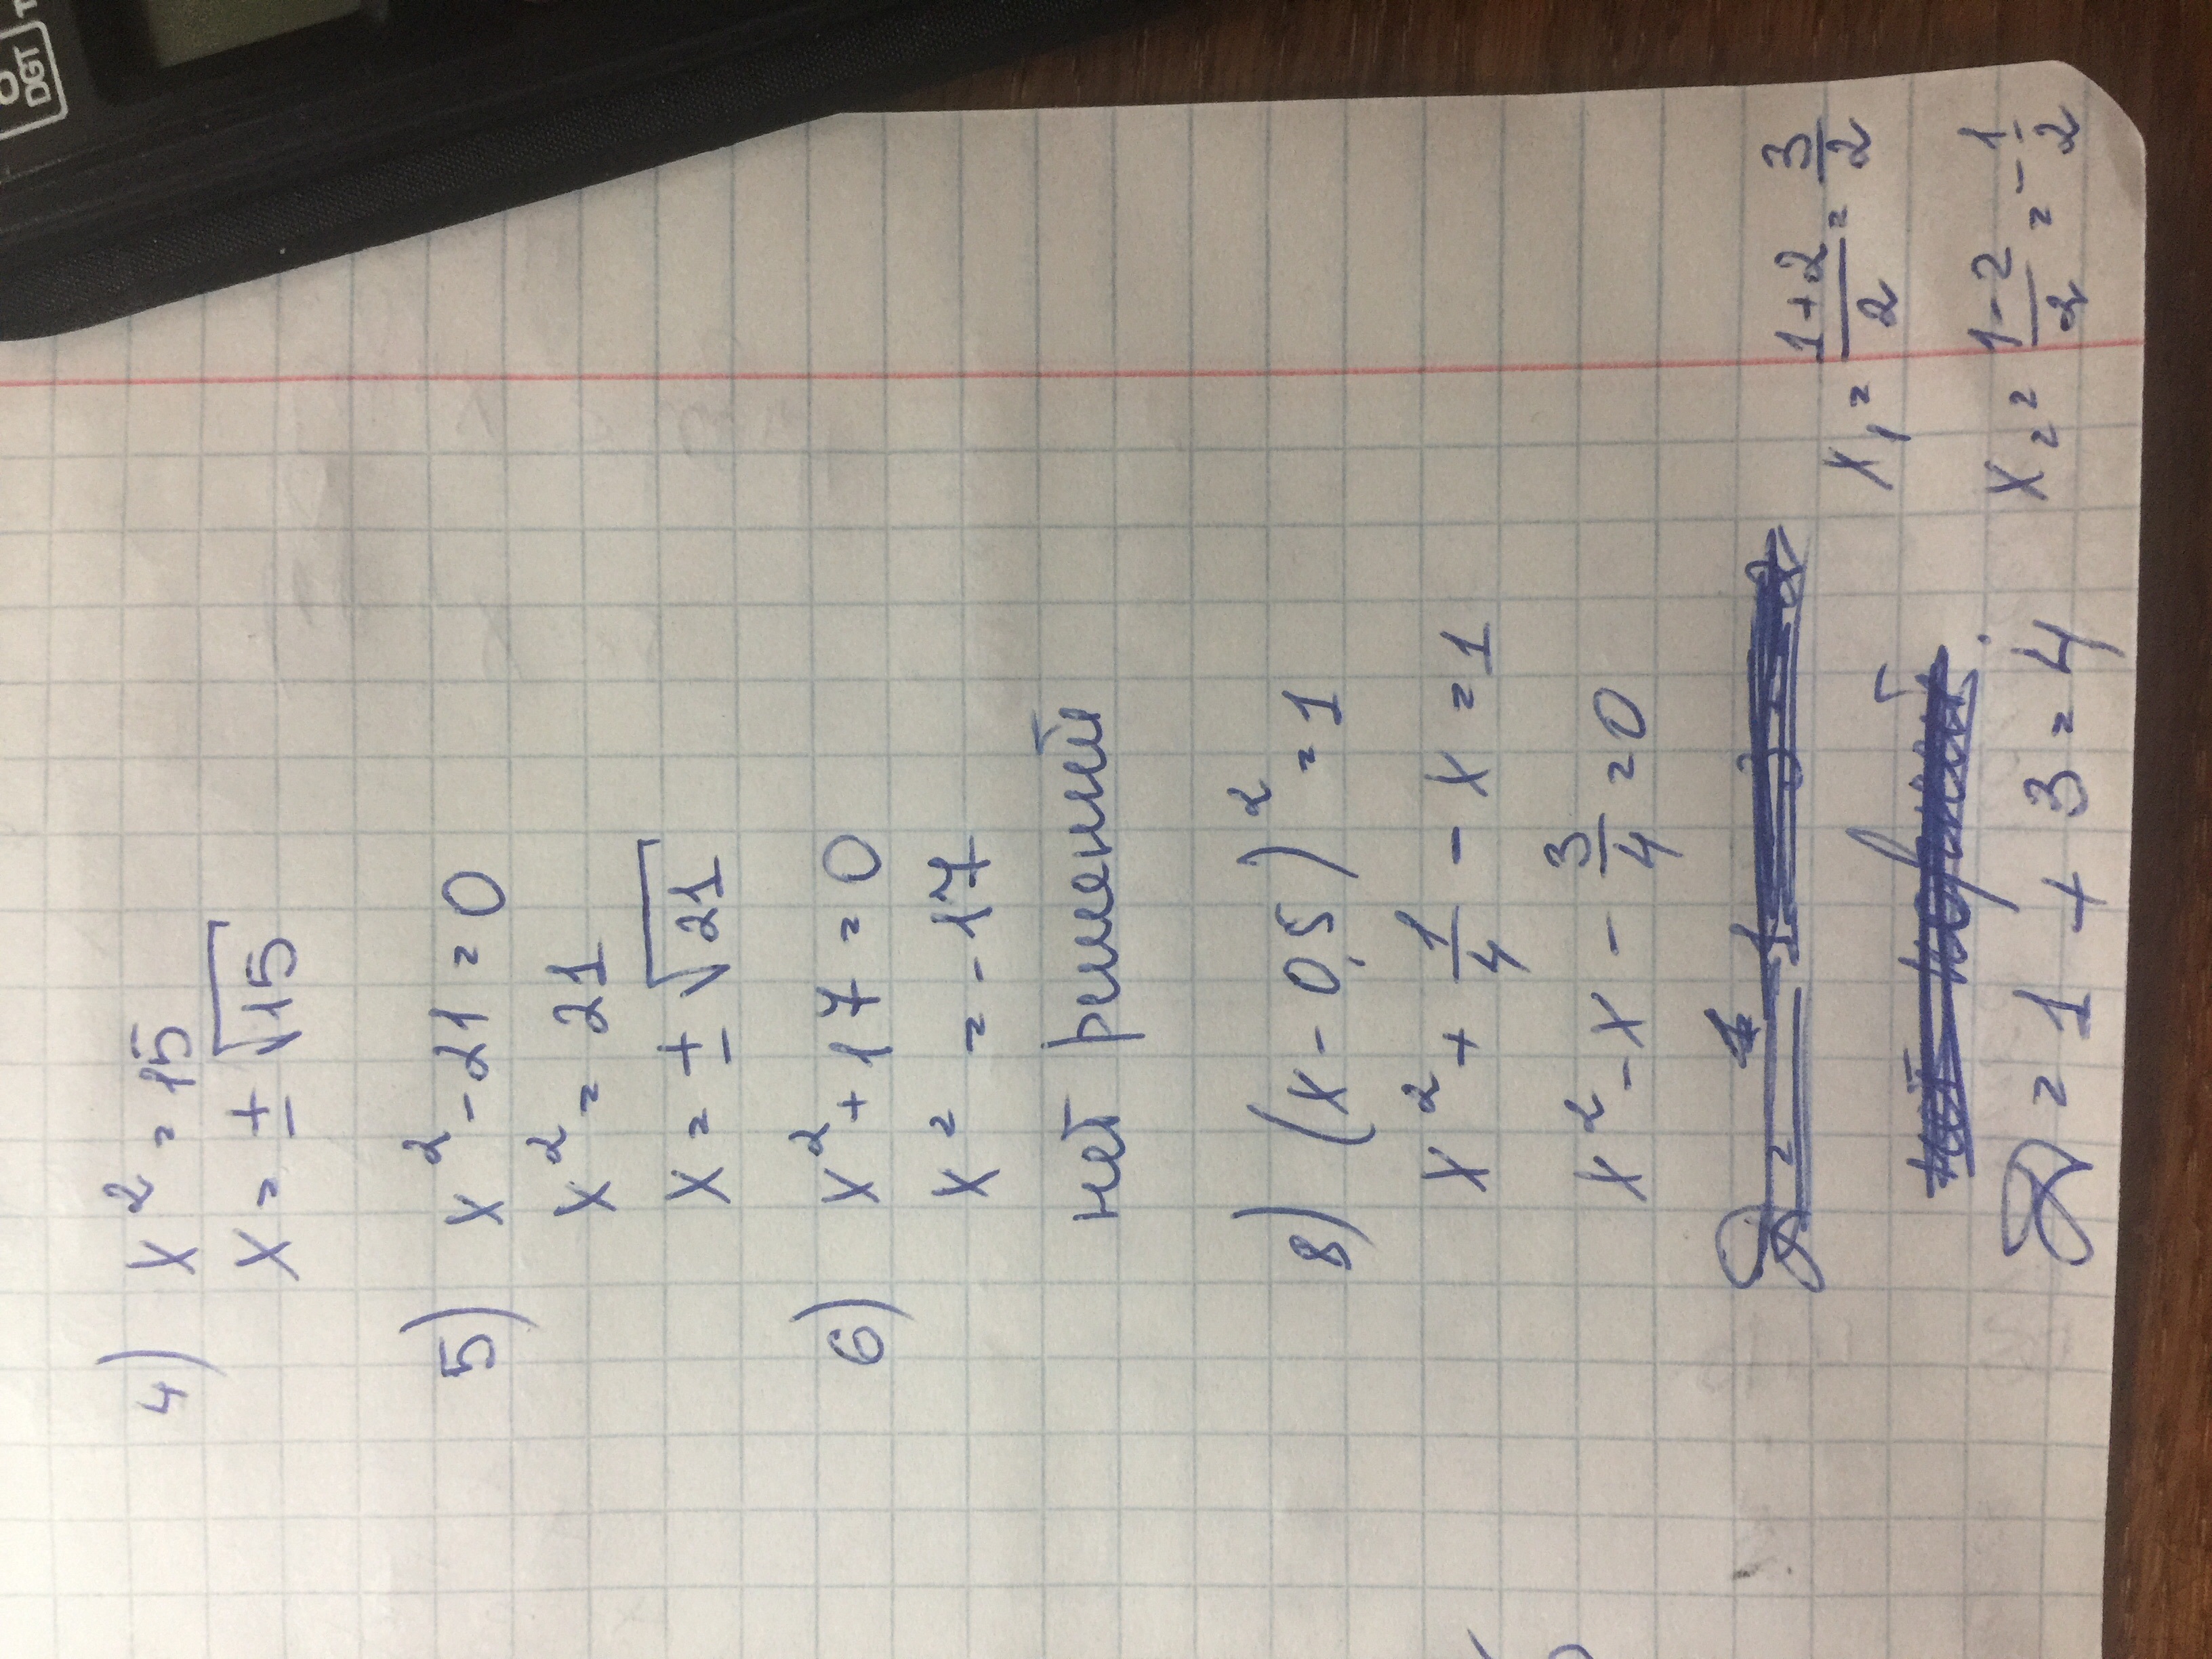 DGT
4) x² = 15
x = ± √15
5) x² - 21 = 0
x² = 21
x = ± √21
6) x² + 17 = 0
x² = - 17
нет решений
8) (x - 0,5)² = 1
x² + 1/4 - x = 1
x² - x - 3/4 = 0
D = 1 + 3 = 4
x₁ = (1+2)/2 = 3/2
x₂ = (1-2)/2 = - 1/2